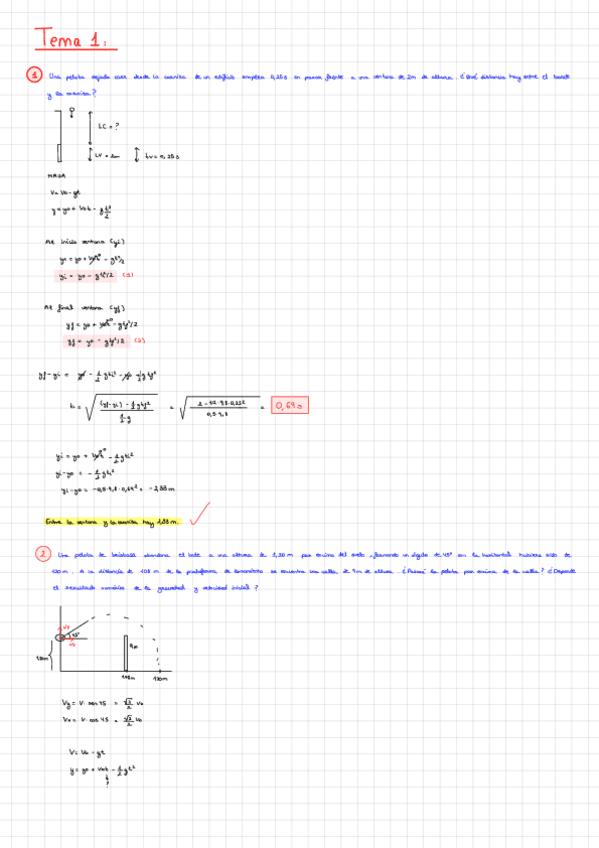 Tema 1:
1 Una pelota dejada caer desde la cornisa de un edificio emplea 0,25s en pasar frente a una ventana de 2m de altura. ¿Qué distancia hay entre el borde
y la cornisa?
LC = ?
LV = 2m
tv = 0,25s
MRUA
V = V0 - gt
y = y0 + V0t - gt²/2
At inicio ventana (yi)
yi = y0 - gti²/2 (1)
At final ventana (yf)
yf = y0 + V0t⁰ - gtf²/2
yf = y0 - gtf²/2 (2)
0,69s
yi - y0 = - 1/2 gti²
Entre la ventana y la cornisa hay 1,88 m.
2 Una pelota de beisbol abandona el bate a una altura de 1,20 m por encima del suelo, formando un ángulo de 45° con la horizontal
120 m. A una distancia de 108 m de la plataforma de lanzamiento se encuentra una valla de 9m de altura. ¿Pasará la pelota por encima de la valla? ¿Depende
el resultado numérico de la gravedad y velocidad inicial?
45°
9m
108m
120m
Vy = V · sen 45 = √2/2 V0
Vx = V · cos 45 = √2/2 V0
V = V0 - gt
y = y0 + V0t - 1/2 gt²
?